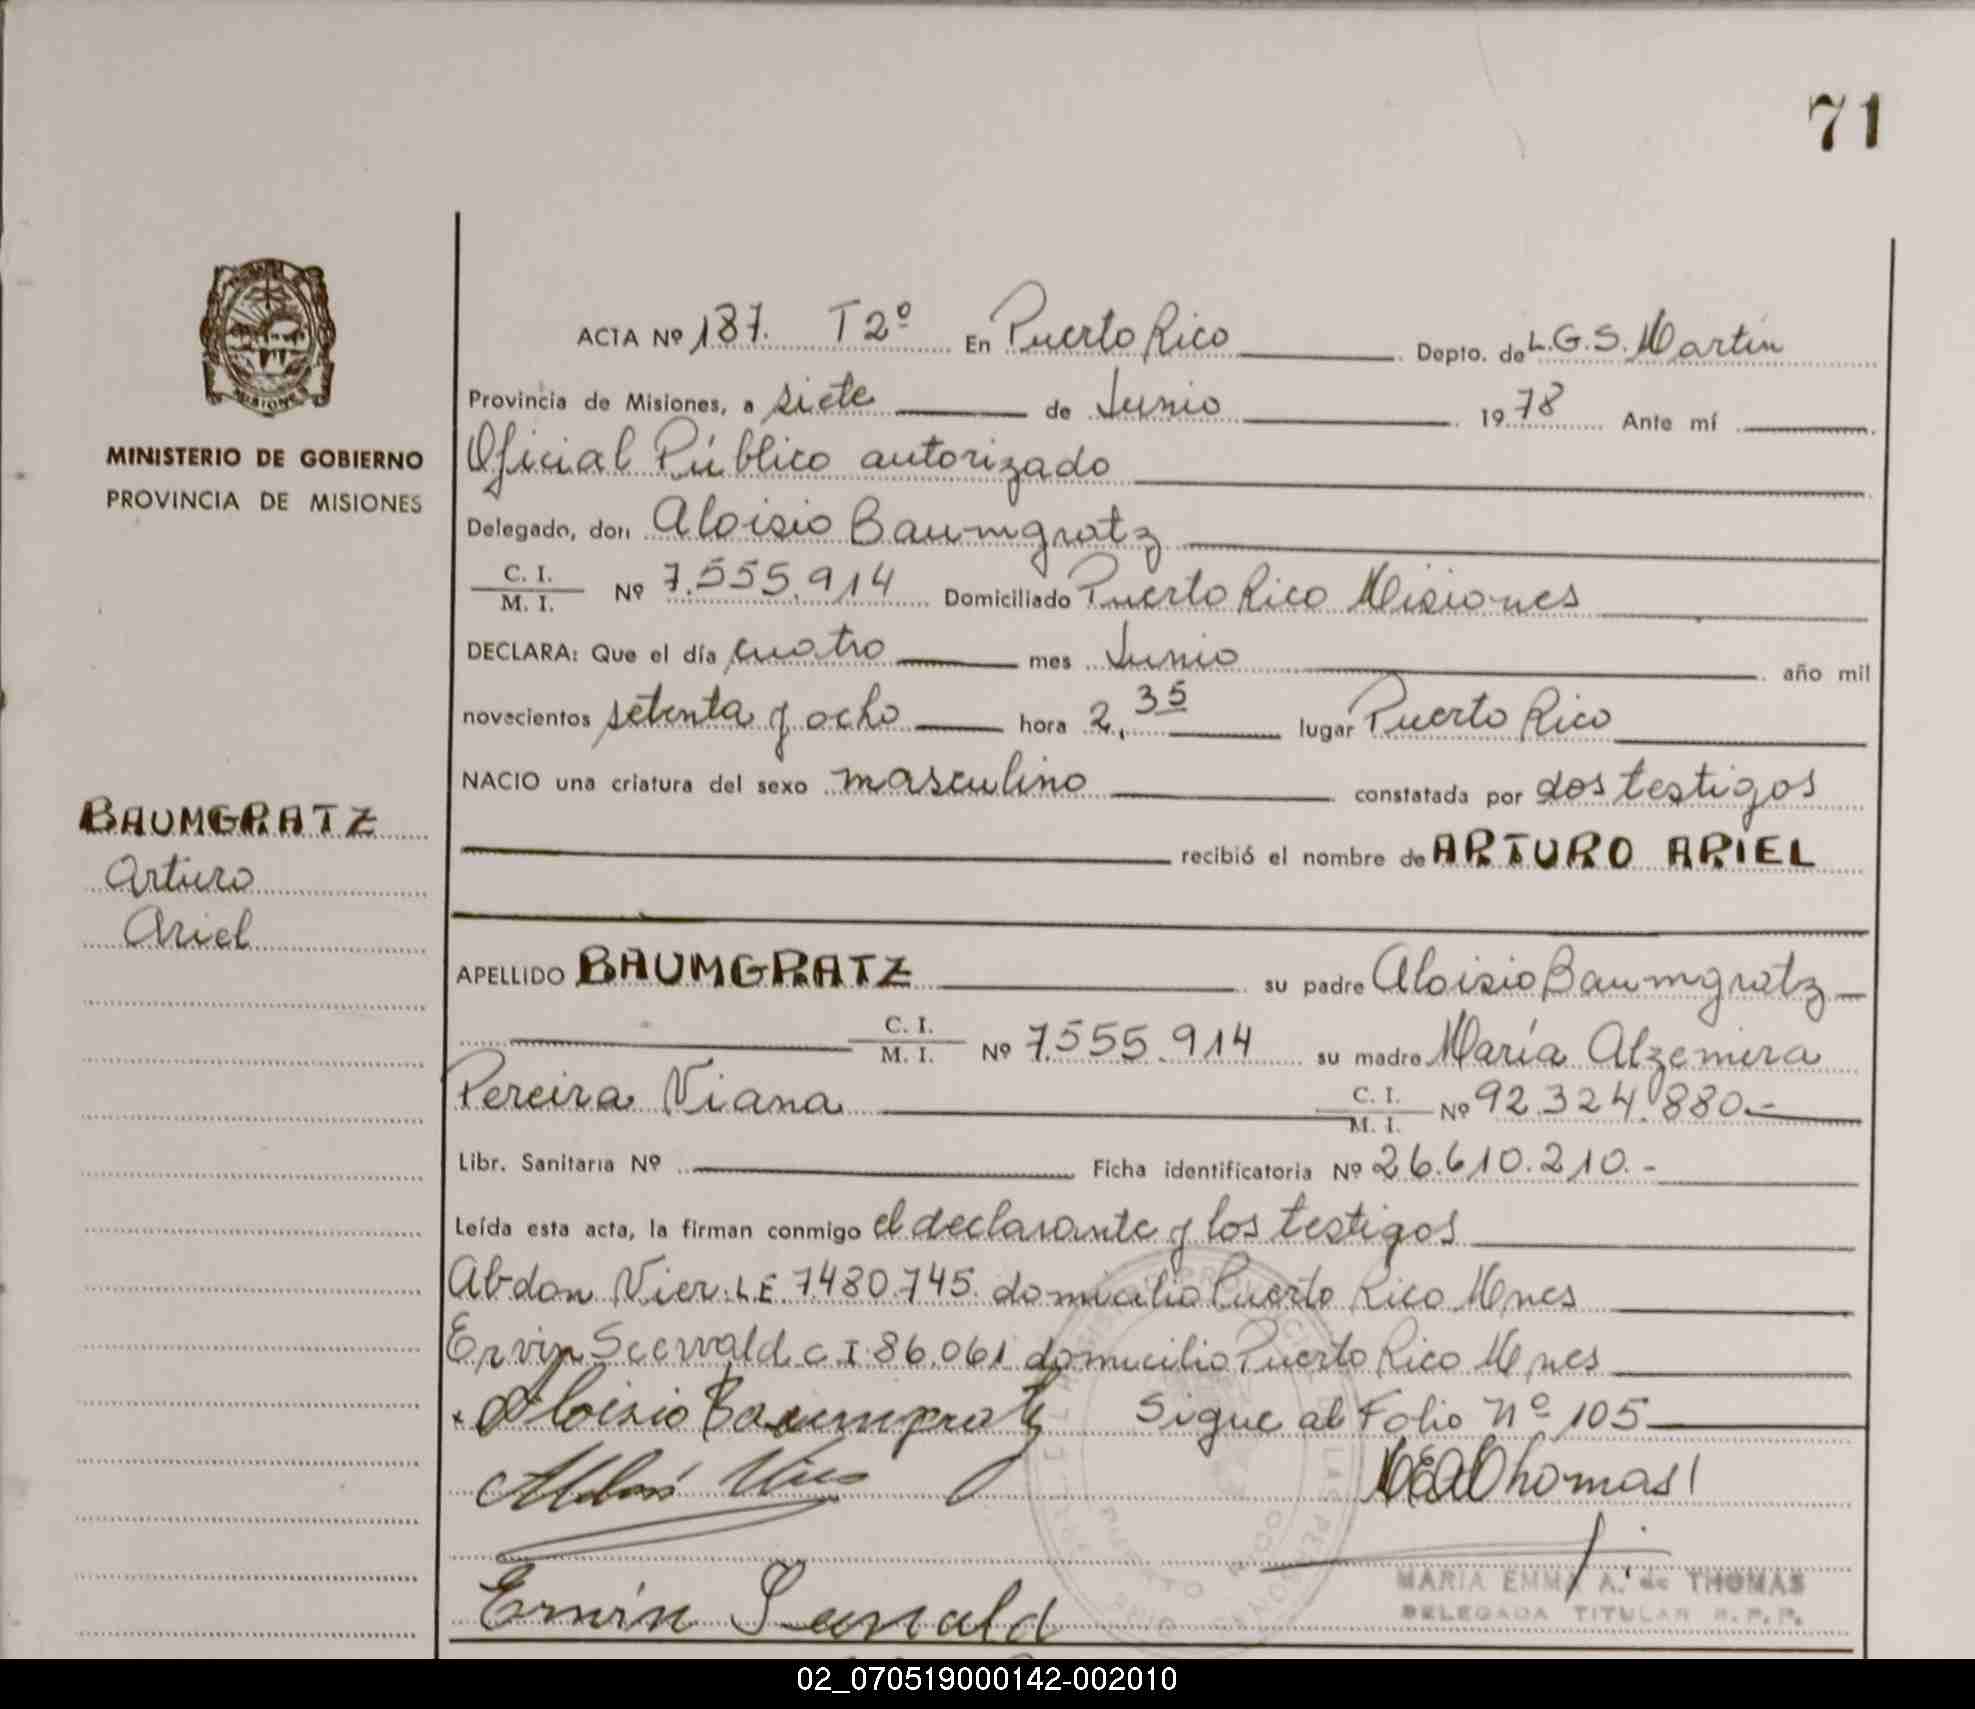 71
ACTA Nº 187. T 2º En Puerto Rico Depto. de L.G.S. Martín
Provincia de Misiones, a siete de Junio 1978 Ante mí
Oficial Público autorizado
MINISTERIO DE GOBIERNO
PROVINCIA DE MISIONES
Delegado, don Aloisio Baumgratz
C. I.
M. I. Nº 7.555.914 Domiciliado Puerto Rico Misiones
DECLARA: Que el día cuatro mes Junio año mil
novecientos setenta y ocho hora 2,35 lugar Puerto Rico
NACIO una criatura del sexo masculino constatada por dos testigos
BAUMGRATZ
Arturo
Ariel
recibió el nombre de ARTURO ARIEL
APELLIDO BAUMGRATZ su padre Aloisio Baumgratz
C. I.
M. I. Nº 7.555.914 su madre María Alzemira
Pereira Viana C. I.
M. I. Nº 92.324.880.-
Libr. Sanitaria Nº Ficha identificatoria Nº 26.610.210.-
Leída esta acta, la firman conmigo el declarante y los testigos
Abdon Vier. L.E 7.480.745. domicilio Puerto Rico Mnes
Ervin Seewald C.I. 86.061 domicilio Puerto Rico Mnes
Aloisio Baumgratz Sigue al Folio Nº 105
Thomas
Erwin Seewald
MARIA EMMA A. de THOMAS
DELEGADA TITULAR R.P.P.
PUERTO RICO
02_070519000142-002010